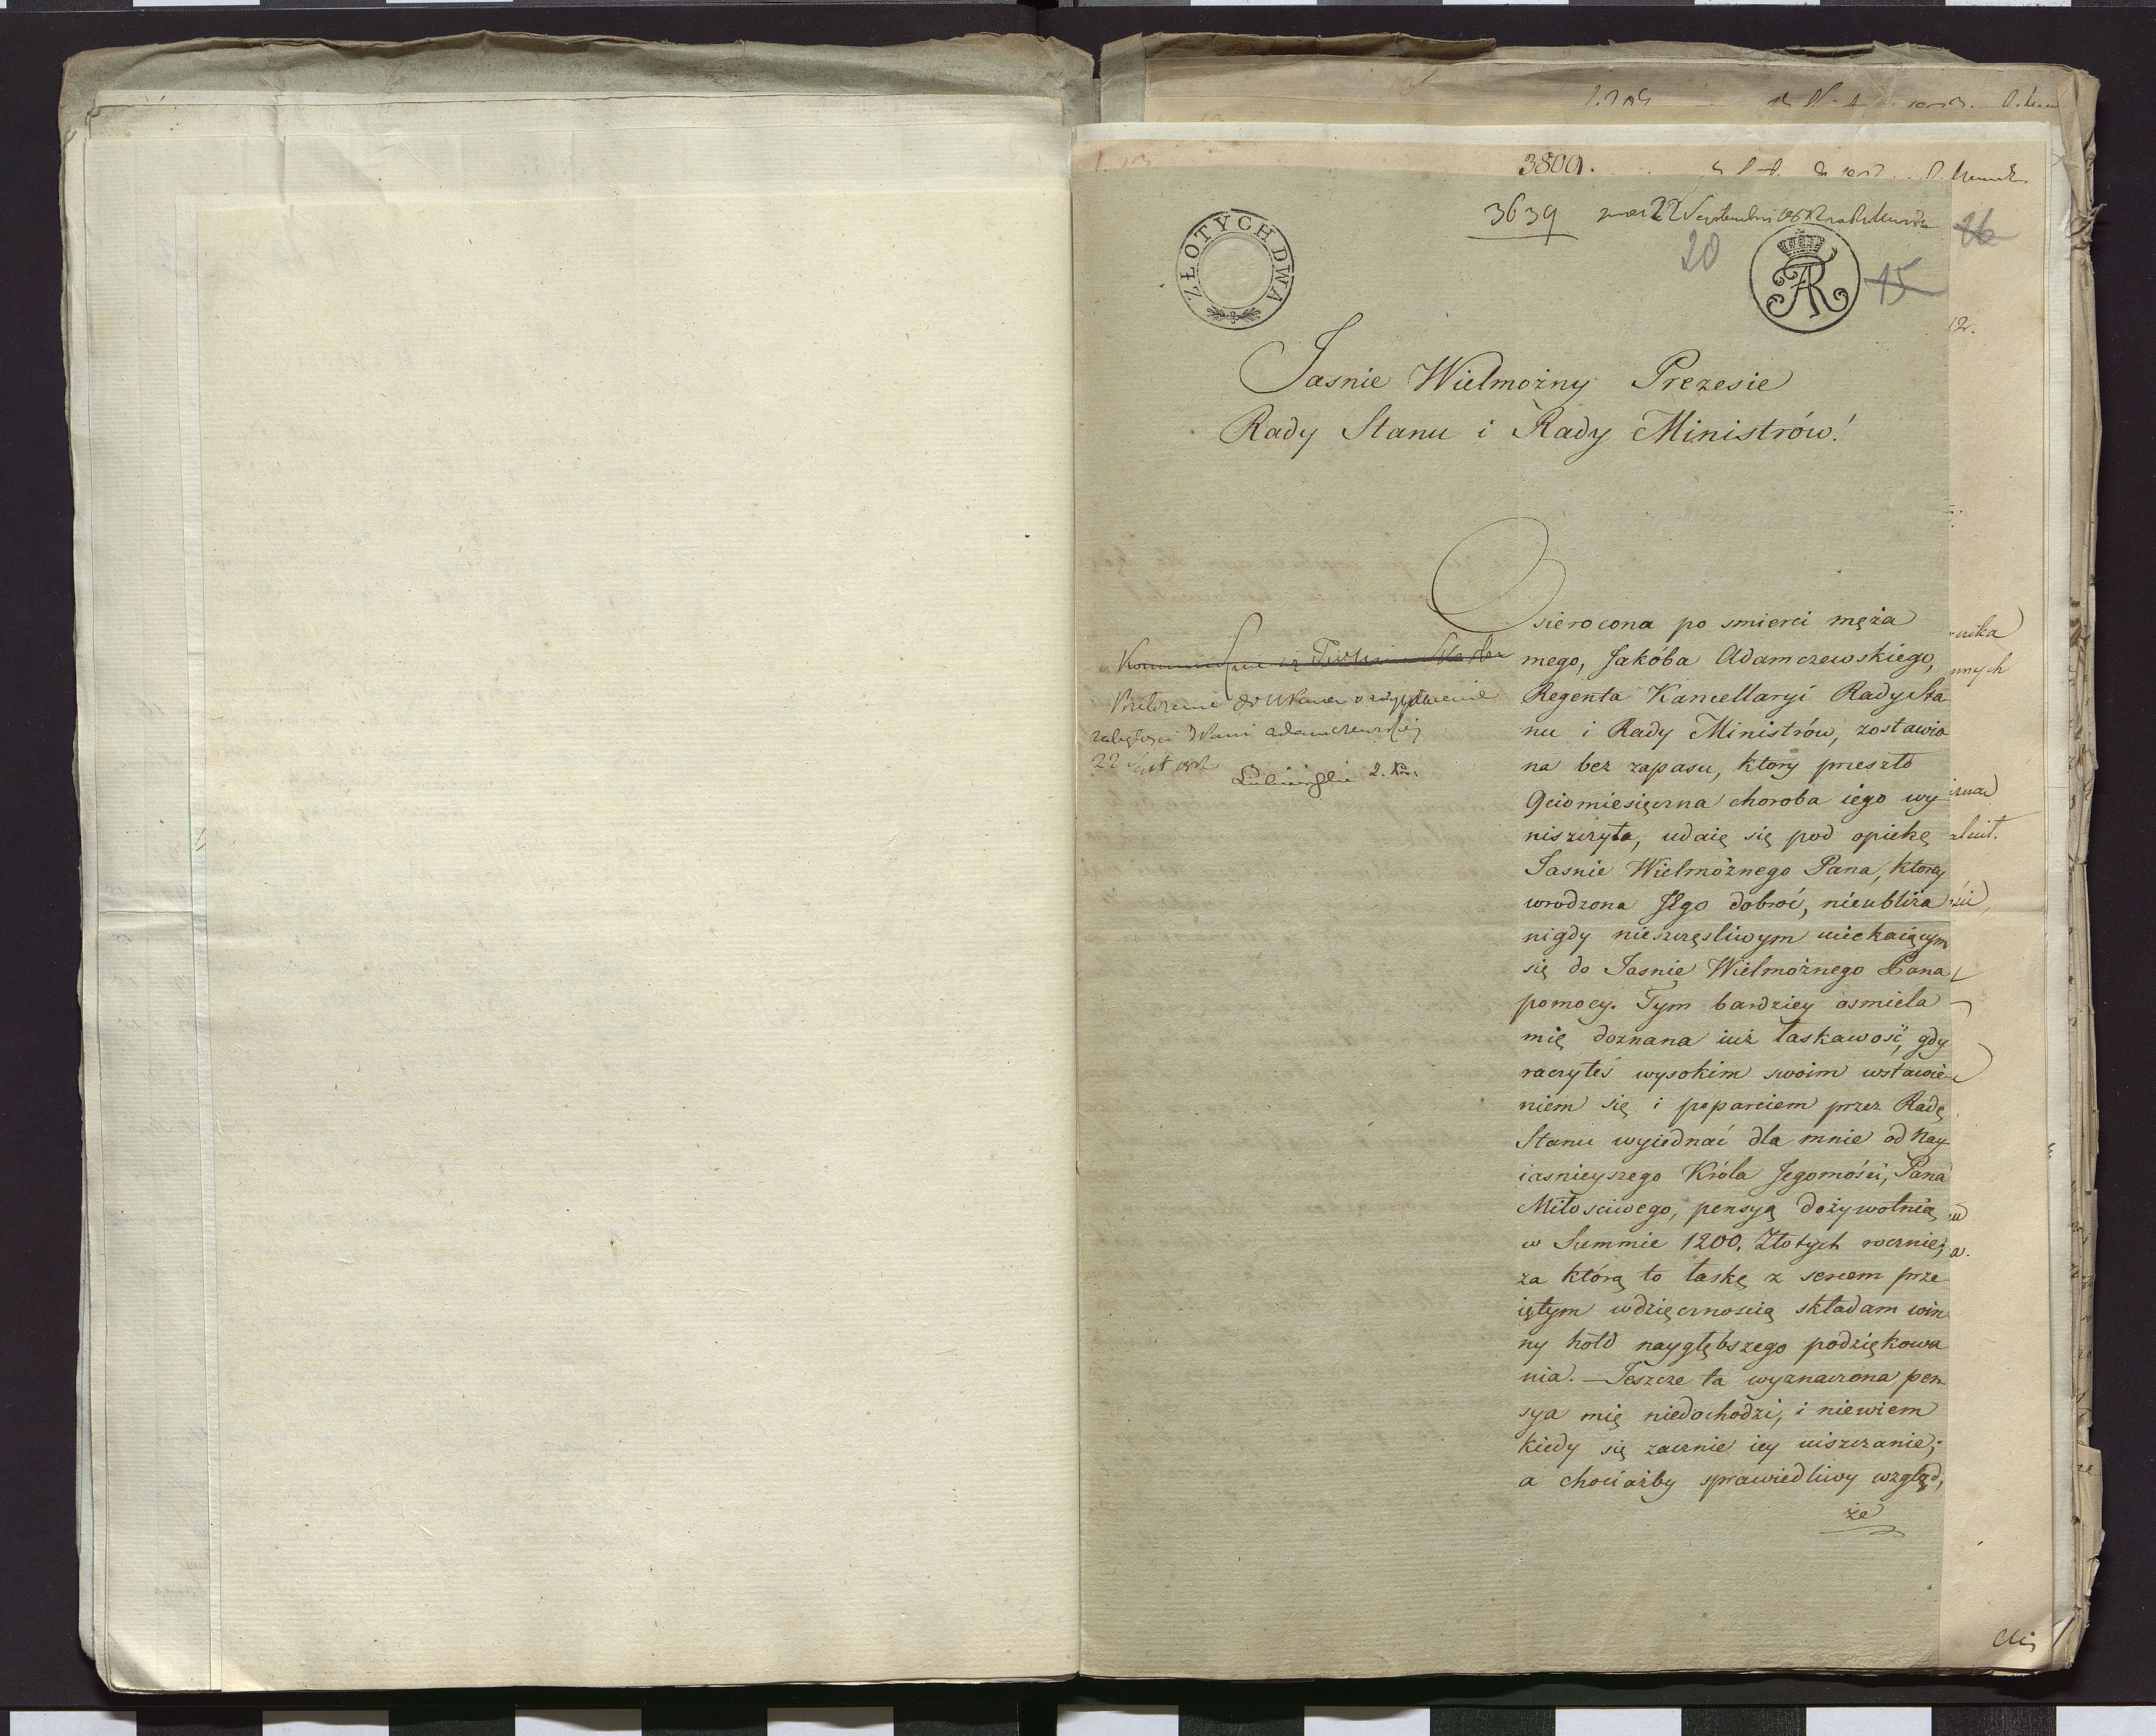 3800.
3639
22 Septembris
26
20
15
ZŁOTYCH DWA
Jasnie Wielmożny Prezesie
Rady Stanu i Rady Ministrów!
Osierocona po smierci męża
mego, Jakóba Adamczewskiego,
Regenta Kancellaryi Rady Sta
nu i Rady Ministrów, zostawio
na bez zapasu, ktory przeszło
9cio miesięczna choroba iego wy
niszczyła, udaię się pod opiekę
Jasnie Wielmożnego Pana, ktorey
wrodzona Jego dobroć, nieubliża
nigdy nieszczęsliwym uciekaiącym
się do Jasnie Wielmożnego Pana
pomocy. Tym bardziey osmiela
mię doznana iuż łaskawość, gdy
raczyłeś wysokim swoim wstawie
niem się i poparciem przez Radę
Stanu wyiednać dla mnie od Nay
iasnieyszego Króla Jegomości, Pana
Miłosciwego, pensyą dożywotnią
w Summie 1200. Złotych rocznie,
za którą to łaskę z sercem prze
iętym wdzięcznoscią składam win
ny hołd naygłębszego podziękowa
nia. — Jeszcze ta wyznaczona pen
sya mię niedochodzi, i niewiem
kiedy się zacznie iey uiszczanie;
a chociażby sprawiedliwy wzgląd,
że
zaległości Pani Adamczewskiey
22 Sept